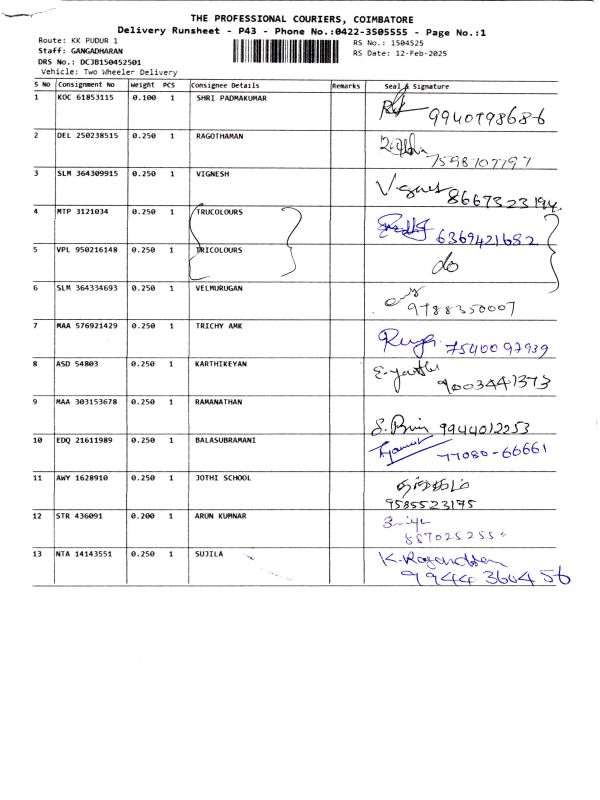 THE PROFESSIONAL COURIERS, COIMBATORE
Delivery Runsheet - P43 - Phone No.:0422-3505555 - Page No.:1
Route: KK PUDUR 1 RS No.: 1504525
Staff: GANGADHARAN RS Date: 12-Feb-2025
DRS No.: DCJB150452501
Vehicle: Two Wheeler Delivery
S No Consignment No Weight PCS Consignee Details Remarks Seal & Signature
1 KOC 61853115 0.100 1 SHRI PADMAKUMAR
9940798686
2 DEL 250238515 0.250 1 RAGOTHAMAN
7598707797
3 SLM 364309915 0.250 1 VIGNESH
8667323194
4 MTP 3121034 0.250 1 TRUCOLOURS
6369421682
5 VPL 950216148 0.250 1 TRICOLOURS
do
6 SLM 364334693 0.250 1 VELMURUGAN
9788350007
7 MAA 576921429 0.250 1 TRICHY AMK
7540097939
8 ASD 54803 0.250 1 KARTHIKEYAN
9003441373
9 MAA 303153678 0.250 1 RAMANATHAN
9944012253
10 EDQ 21611989 0.250 1 BALASUBRAMANI
77080-66661
11 AWY 1628910 0.250 1 JOTHI SCHOOL
9585523175
12 STR 436091 0.200 1 ARUN KUMNAR
13 NTA 14143551 0.250 1 SUJILA
K. Rajendran
9944360456